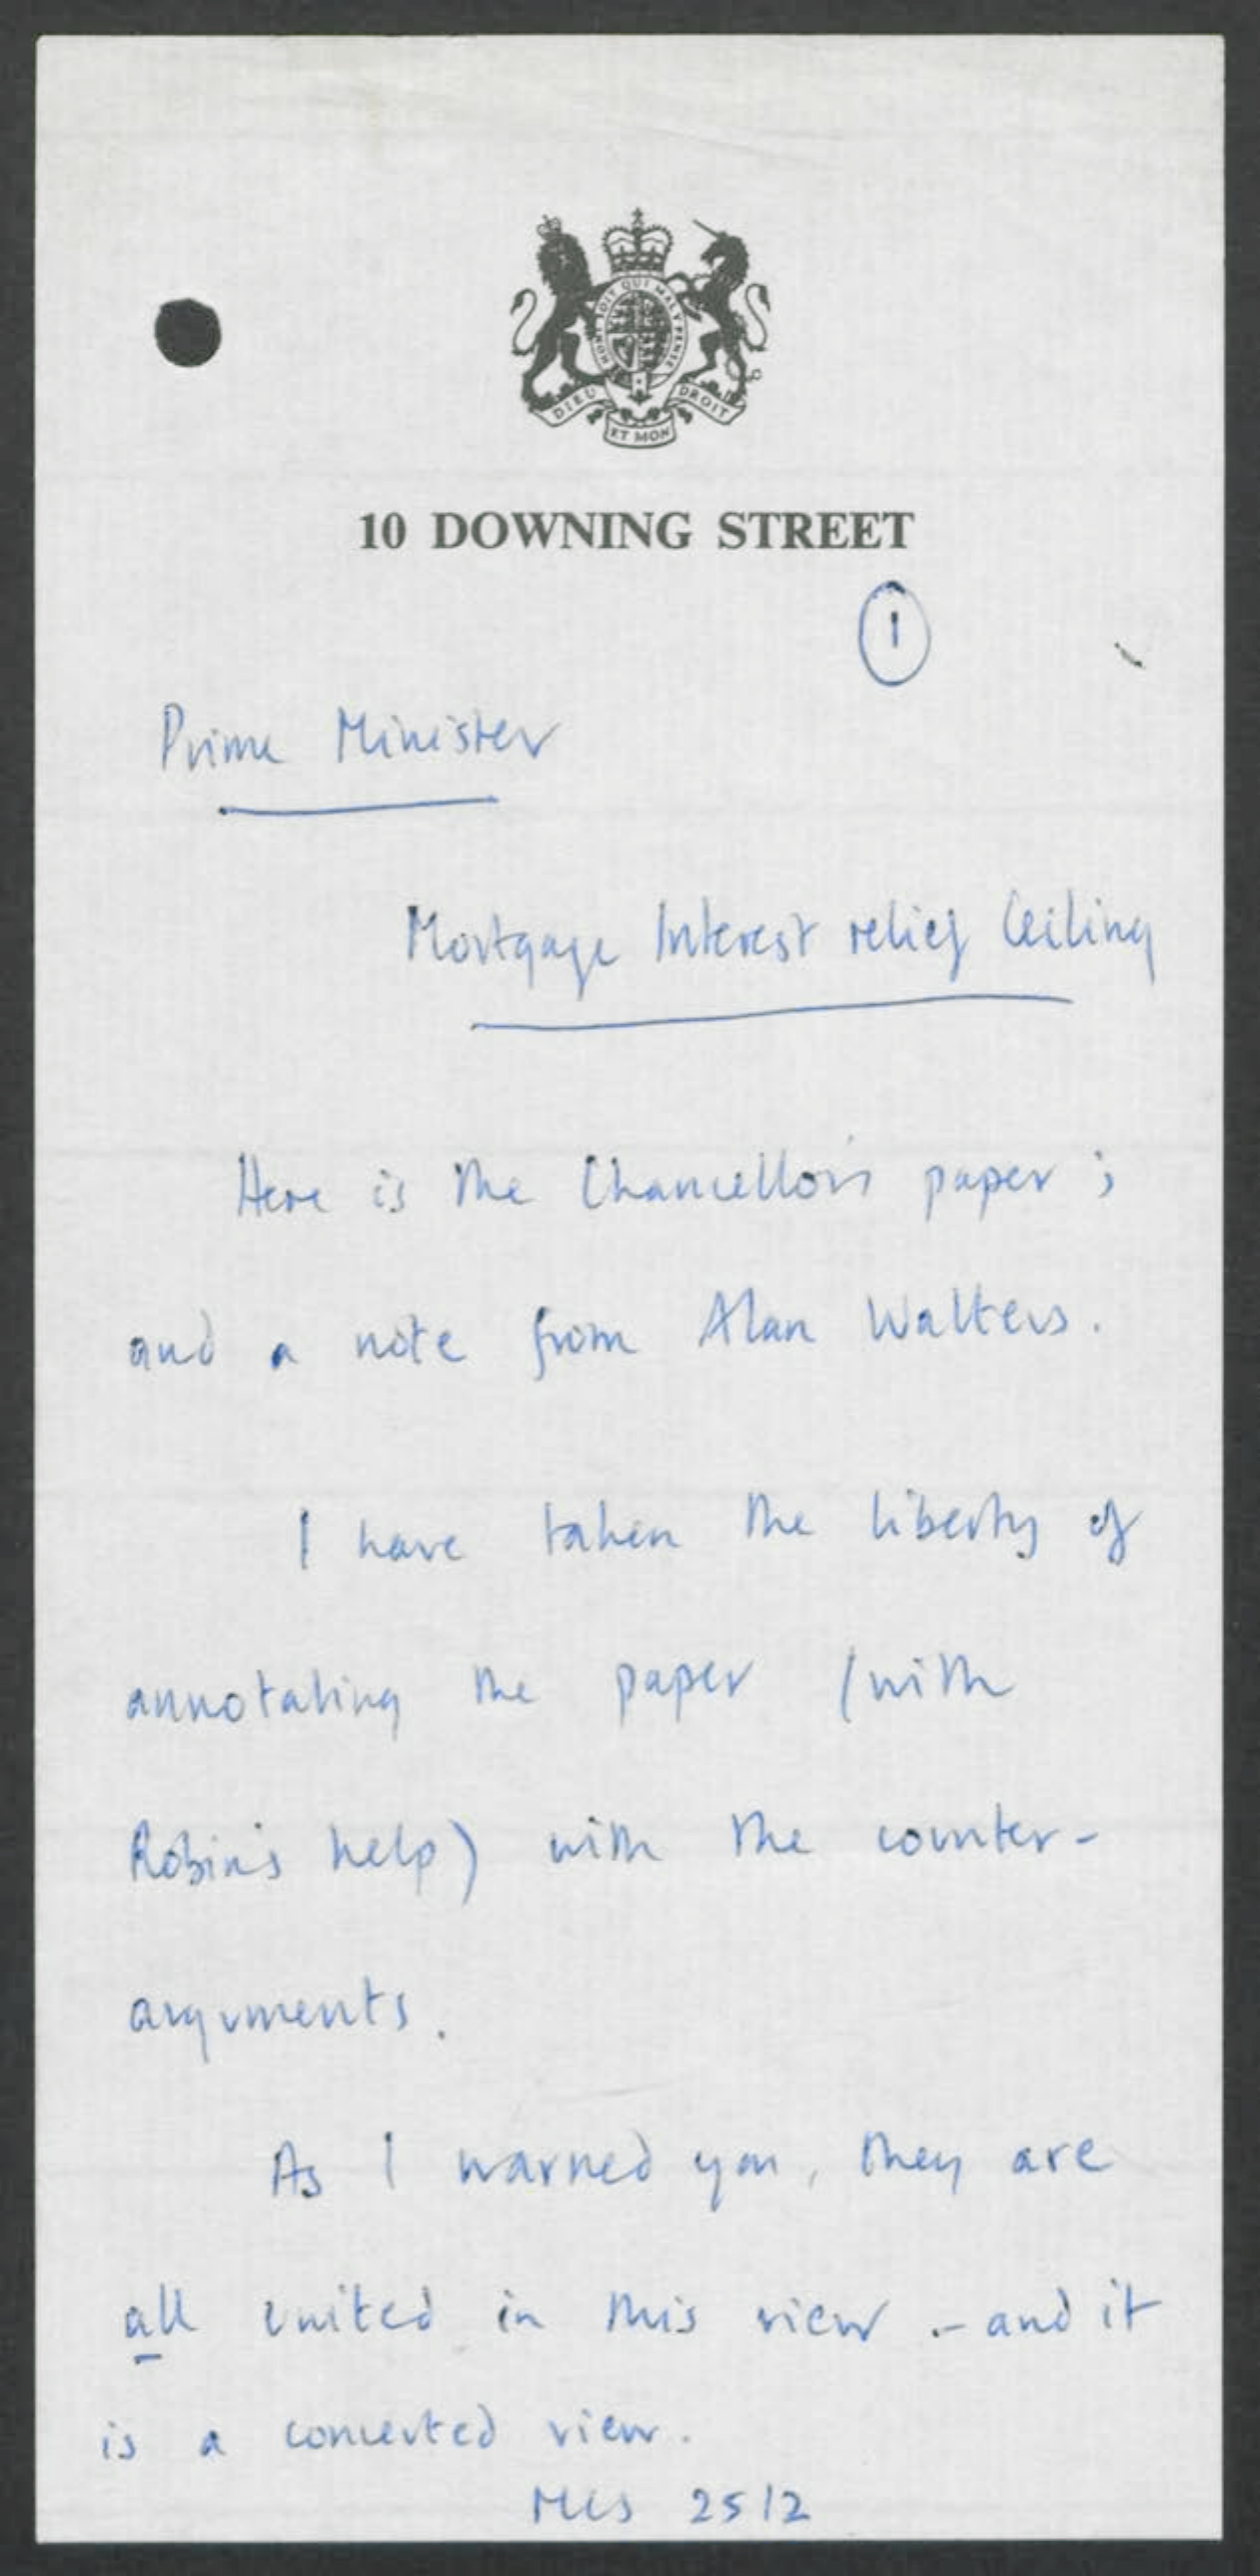 HONI SOIT QUI MAL Y PENSE
DIEU ET MON DROIT
10 DOWNING STREET
1
Prime Minister
Mortgage Interest relief Ceiling
Here is the Chancellor's paper;
and a note from Alan Walters.
I have taken the liberty of
annotating the paper (with
Robin's help) with the counter-
arguments.
As I warned you, they are
all united in this view - and it
is a concerted view.
MCS 25/2